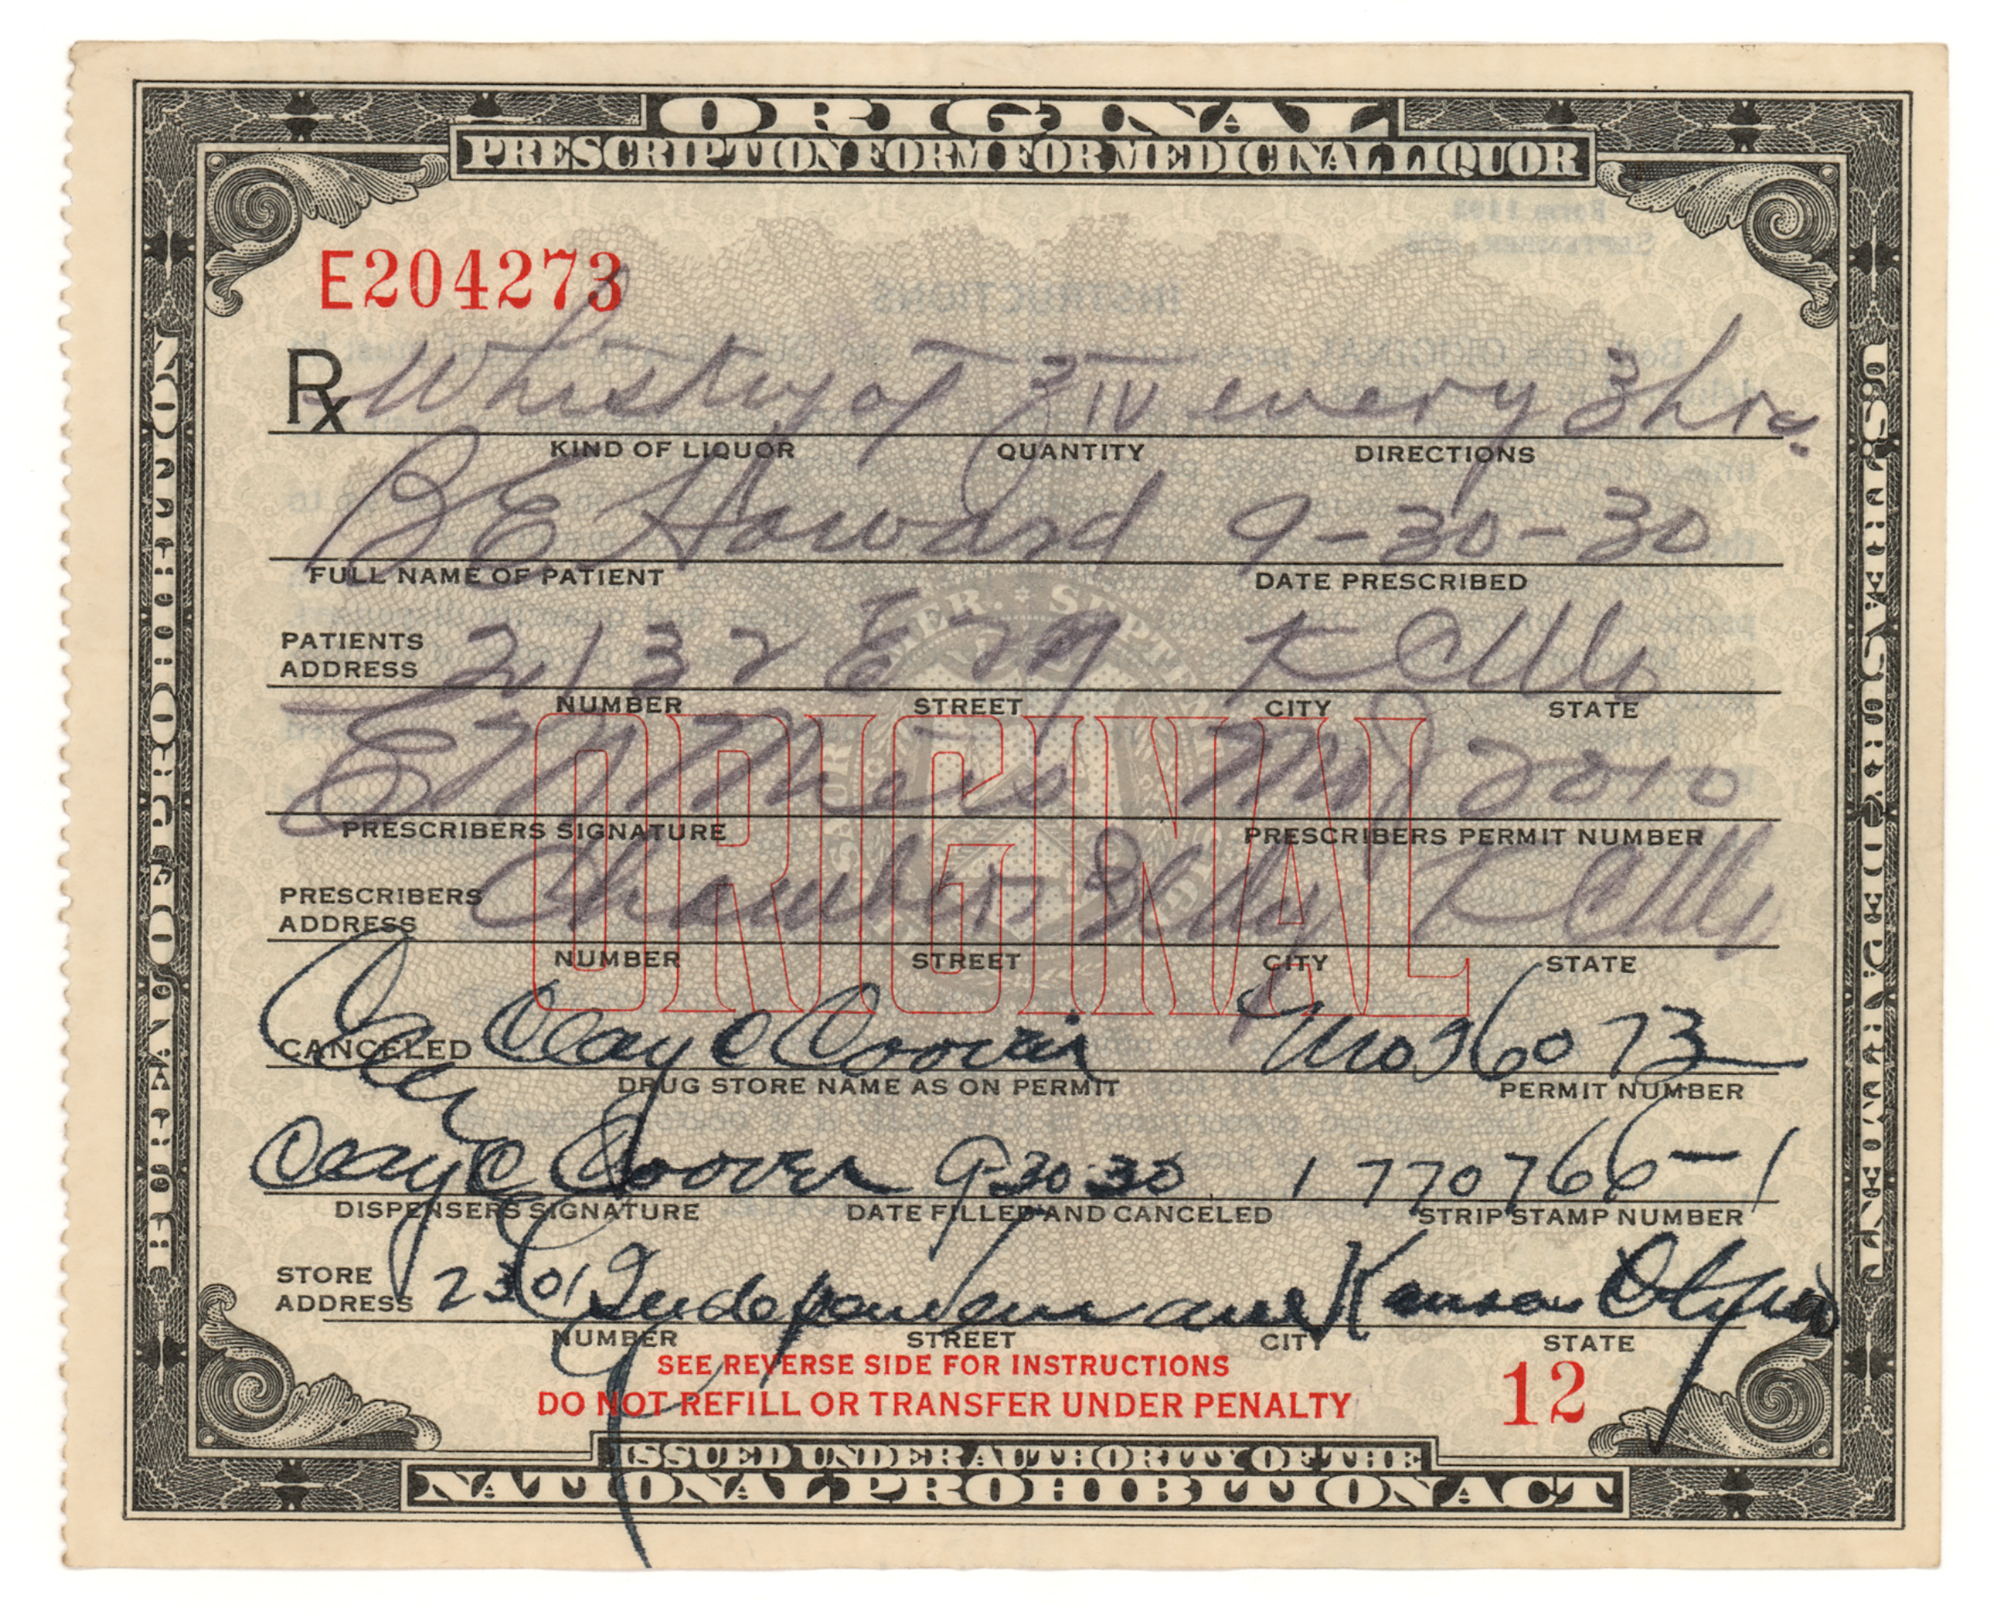 ORIGINAL
PRESCRIPTION FORM FOR MEDICINAL LIQUOR
E204273
Rx Whiskey every 3 hrs.
KIND OF LIQUOR QUANTITY DIRECTIONS
B E Howard 9-30-30
FULL NAME OF PATIENT DATE PRESCRIBED
PATIENTS ADDRESS 2132 E 29 K C Mo
NUMBER STREET CITY STATE
ORIGINAL
E N 2010
PRESCRIBERS SIGNATURE PRESCRIBERS PERMIT NUMBER
PRESCRIBERS ADDRESS Chambers Bldg K C Mo
NUMBER STREET CITY STATE
CANCELED Clay C Coover Mo 36073
DRUG STORE NAME AS ON PERMIT PERMIT NUMBER
Clay C Coover 9-30-30 1770766-1
DISPENSERS SIGNATURE DATE FILLED AND CANCELED STRIP STAMP NUMBER
STORE ADDRESS 2301 Independence ave Kansas City Mo
NUMBER STREET CITY STATE
SEE REVERSE SIDE FOR INSTRUCTIONS
DO NOT REFILL OR TRANSFER UNDER PENALTY 12
ISSUED UNDER AUTHORITY OF THE
NATIONAL PROHIBITION ACT
U.S. TREASURY DEPARTMENT